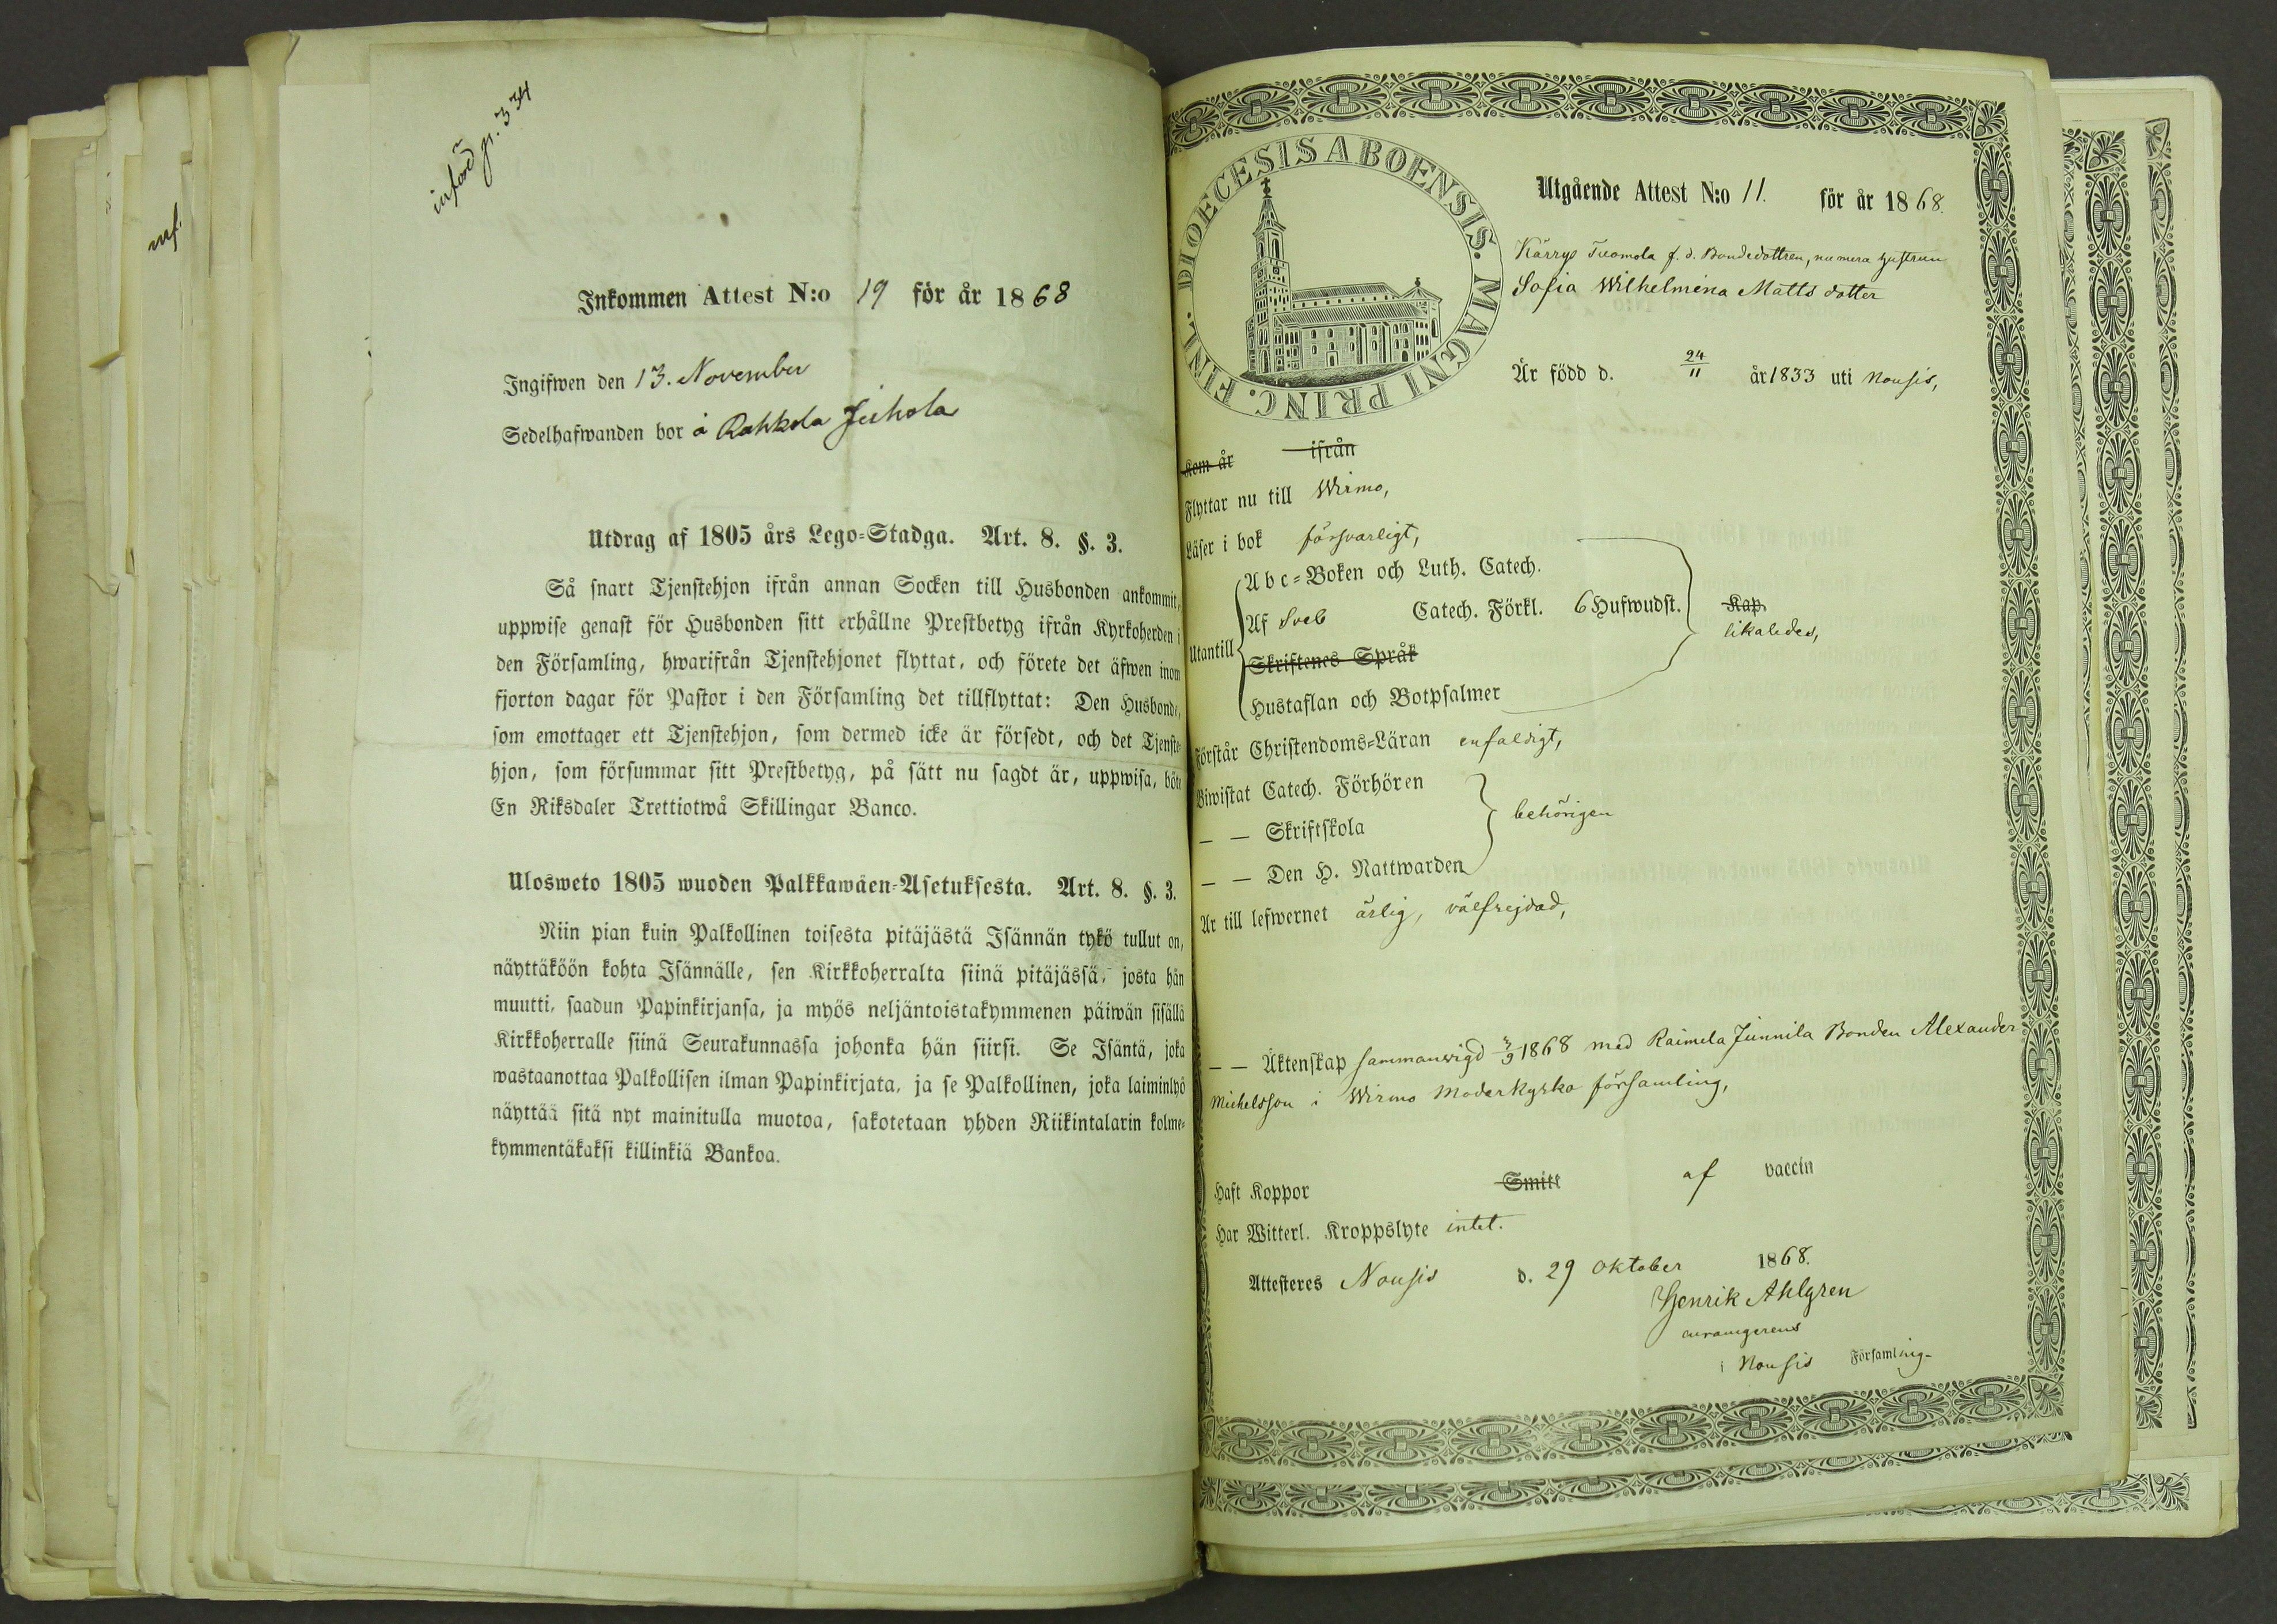 införd p. 334
inf.
Inkommen Attest N:o 19 för år 1868
Ingifwen den 13. November
Sedelhafwanden bor å Rahkola Juhola
Utdrag af 1805 års Lego-Stadga. Art. 8. §. 3.
Så snart Tjenstehjon ifrån annan Socken till Husbonden ankommit,
uppwise genast för Husbonden sitt erhållne Prestbetyg ifrån Kyrkoherden i
den Församling, hwarifrån Tjenstehjonet flyttat, och förete det äfwen inom
fjorton dagar för Pastor i den Församling det tillflyttat: Den Husbonde,
som emottager ett Tjenstehjon, som dermed icke är försedt, och det Tjenste-
hjon, som försummar sitt Prestbetyg, på sätt nu sagdt är, uppwisa, böte
En Riksdaler Trettiotwå Skillingar Banco.
Ulosweto 1805 wuoden Palkkawäen-Asetuksesta. Art. 8. §. 3.
Niin pian kuin Palkollinen toisesta pitäjästä Isännän tykö tullut on,
näyttäköön kohta Isännälle, sen Kirkkoherralta siinä pitäjässä, josta hän
muutti, saadun Papinkirjansa, ja myös neljäntoistakymmenen päiwän sisällä
Kirkkoherralle siinä Seurakunnassa johonka hän siirsi. Se Isäntä, joka
wastaanottaa Palkollisen ilman Papinkirjata, ja se Palkollinen, joka laiminlyö
näyttää sitä nyt mainitulla muotoa, sakotetaan yhden Riikintalarin kolme-
kymmentäkaksi killinkiä Bankoa.
DIOECESIS ABOENSIS. MAGNI PRINC. FINL.
Utgående Attest N:o 11. för år 1868.
Kärrys Tuomola f. d. Bondedottren, numera hustrun
Sofia Wilhelmina Matts dotter
Är född d. 24/11 år 1833 uti Nousis,
Kom år ifrån
Flyttar nu till Wirmo,
Läser i bok försvarligt,
Utantill
A b c-Boken och Luth. Catech.
Af Sveb Catech. Förkl. 6 Hufwudst. Kap.
likaledes,
Skriftenes Språk
Hustaflan och Botpsalmer
Förstår Christendoms-Läran enfaldigt,
Biwistat Catech. Förhören
— — Skriftskola behörigen
— — Den H. Nattwarden
Är till lefwernet ärlig, välfrejdad,
— — Äktenskap sammanvigd 3/9 1868 med Raimela Junnila Bonden Alexander
Michelsson i Wirmo Moderkyrko församling,
Haft Koppor Smitt af vaccin
Har Witterl. Kroppslyte intet.
Attesteres Nousis d. 29 Oktober 1868.
Henrik Ahlgren
curam gerens
i Nousis Församling.